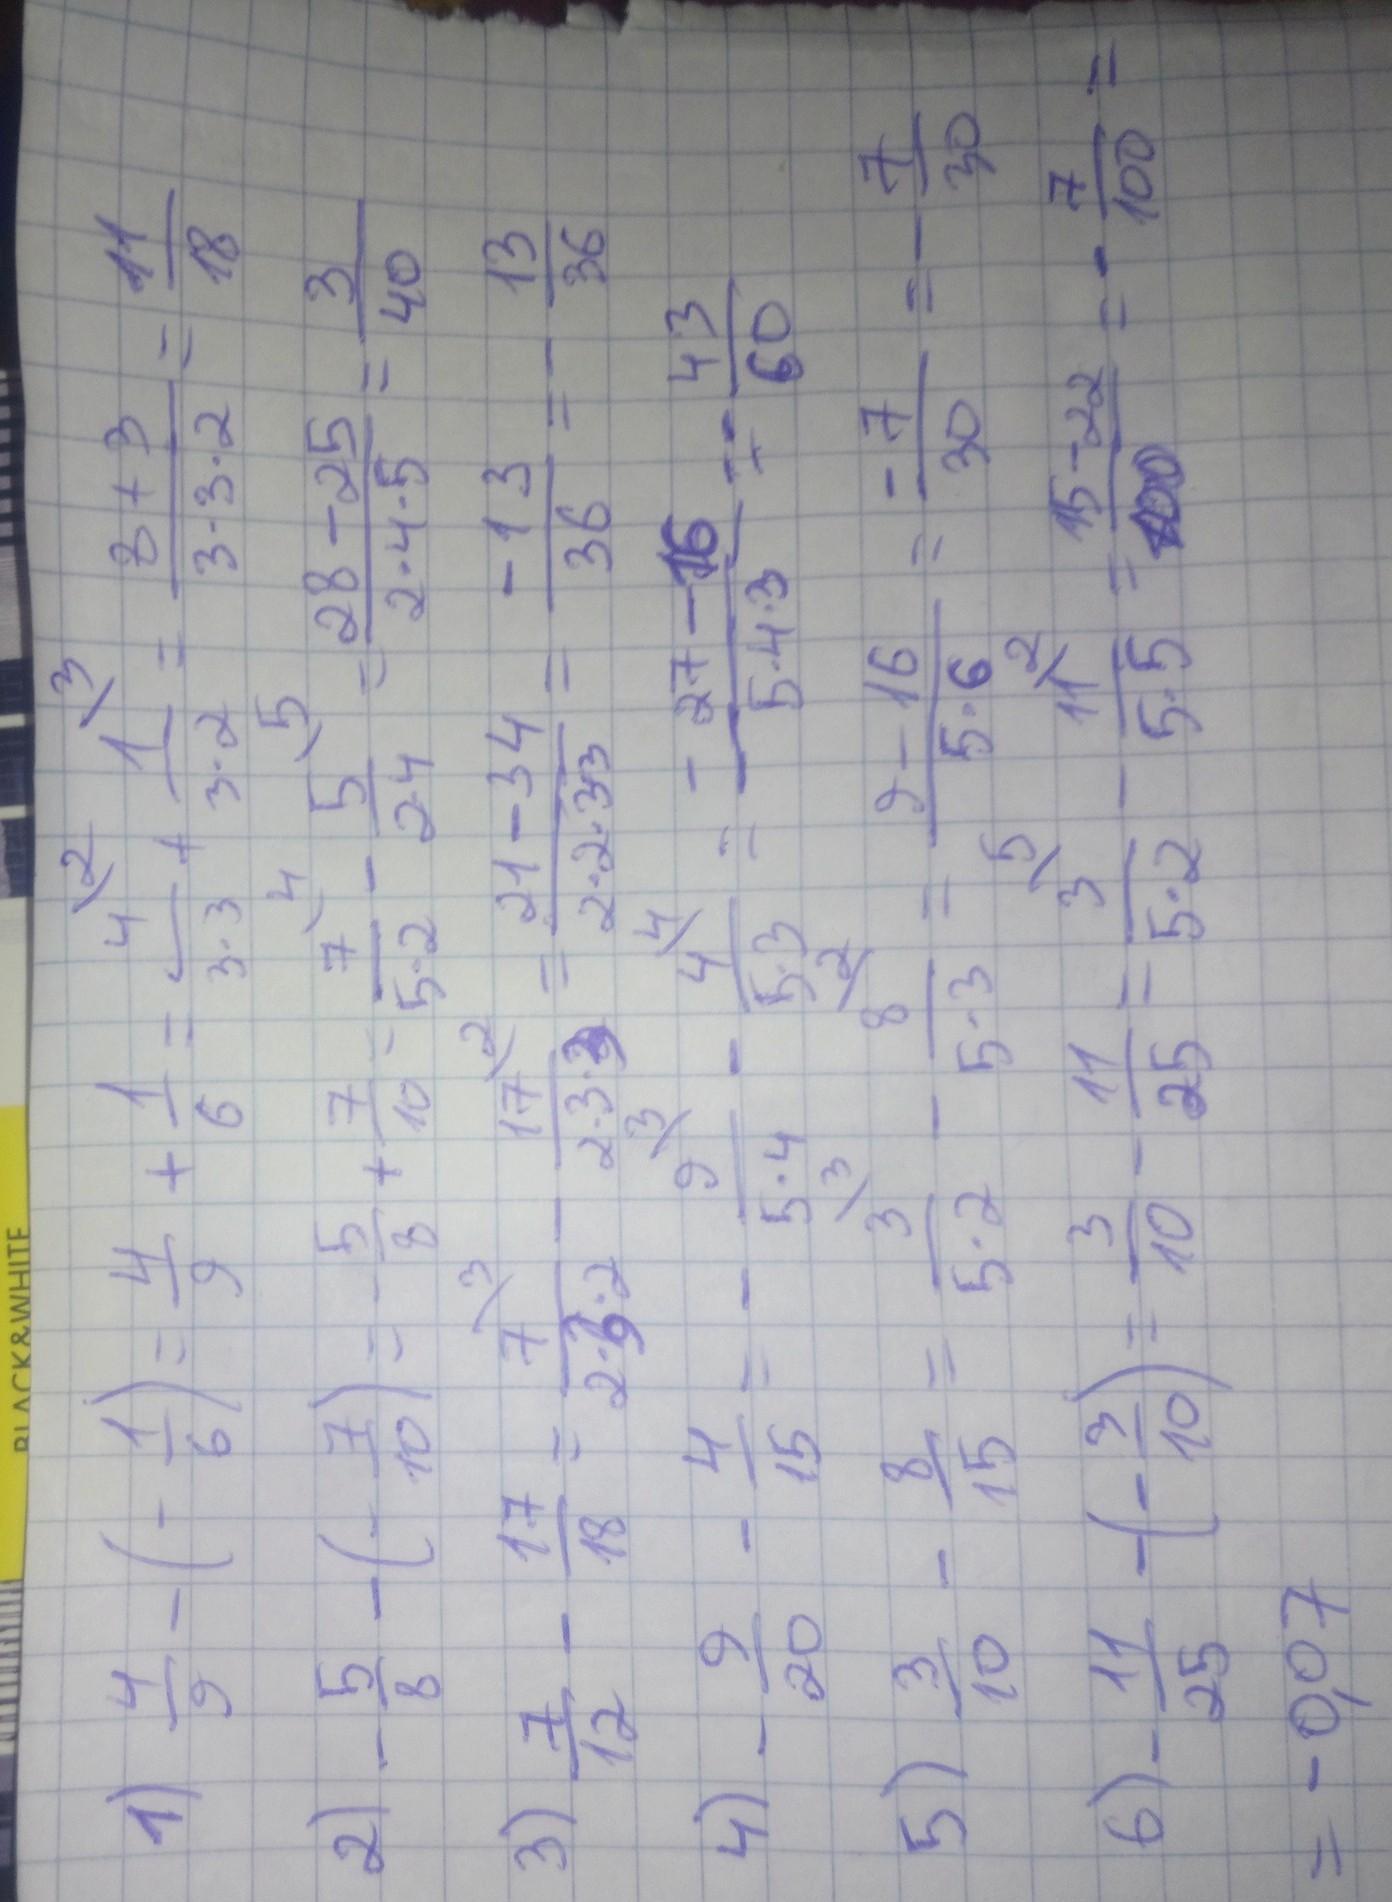 1) 4/9 - (- 1/6) = 4/9 + 1/6 = 4\2/3·3 + 1\3/3·2 = 8+3/3·3·2 = 11/18
2) - 5/8 - (- 7/10) = - 5/8 + 7/10 = 7\4/5·2 - 5\5/2·4 = 28-25/2·4·5 = 3/40
3) 7/12 - 17/18 = 7\3/2·3·2 - 17\2/2·3·3 = 21-34/2·2·33 = -13/36 = - 13/36
4) - 9/20 - 4/15 = - 9\3/5·4 - 4\4/5·3 = - -27-16/5·4·3 = - 43/60
5) 3/10 - 8/15 = 3\3/5·2 - 8\2/5·3 = 9-16/5·6 = -7/30 = - 7/30
6) - 11/25 - (- 3/10) = 3/10 - 11/25 = 3\5/5·2 - 11\2/5·5 = 15-22/100 = - 7/100 =
= -0,07
BLACK&WHITE